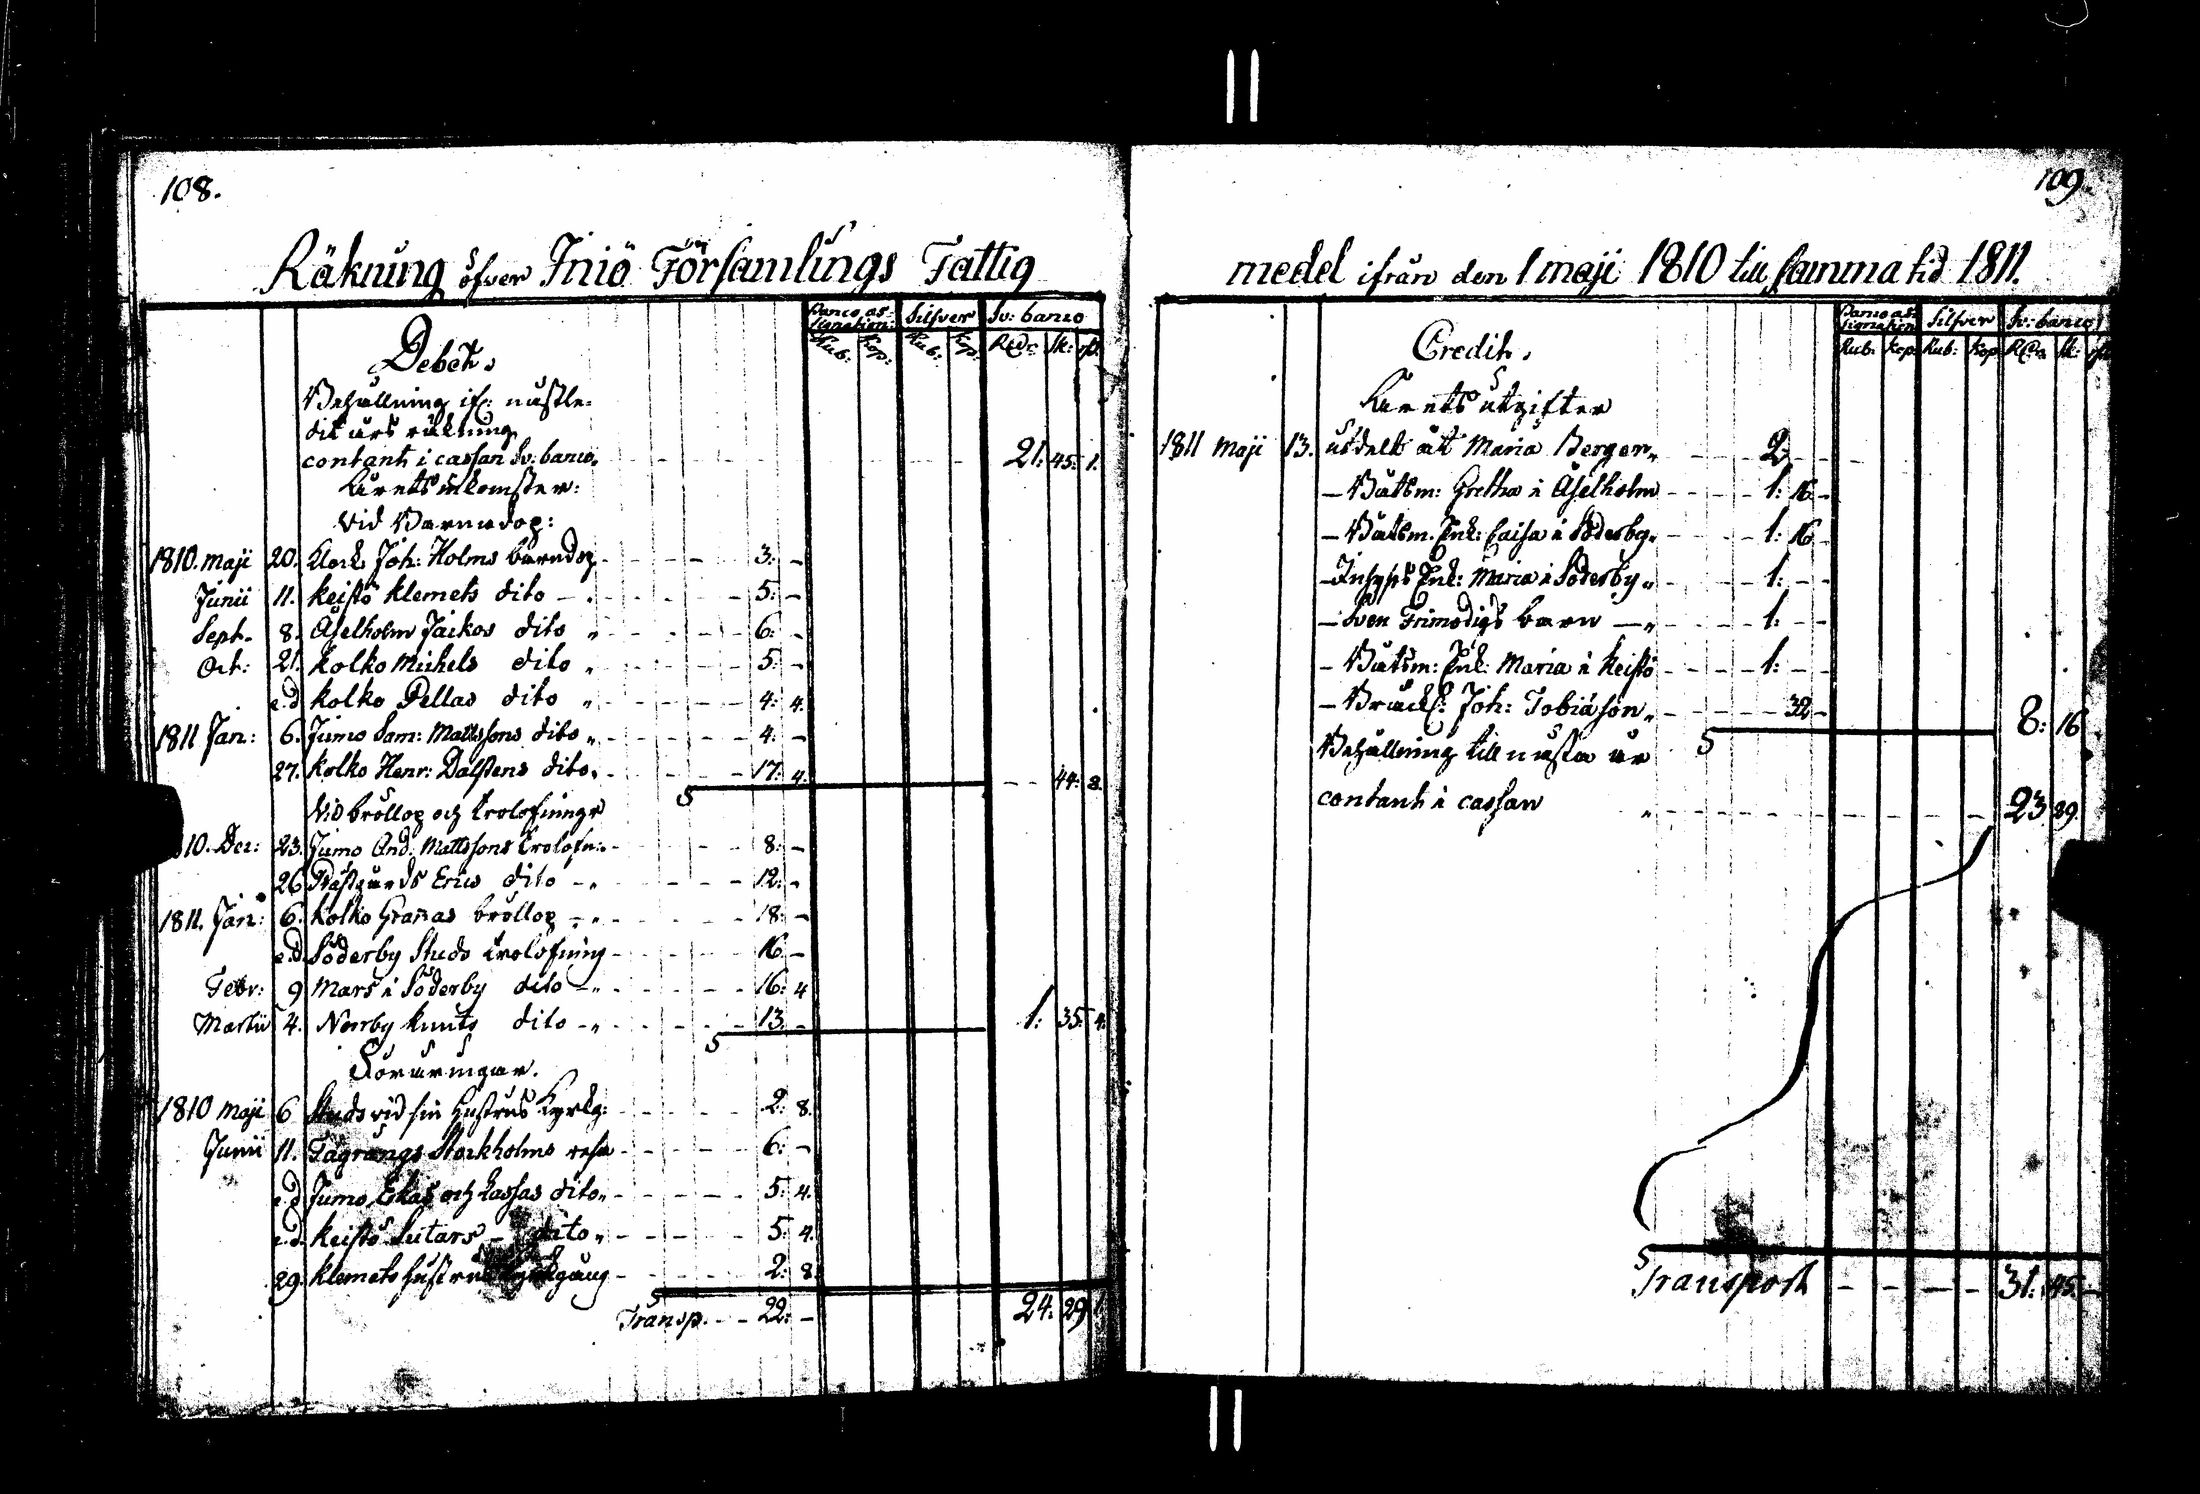 108.
Räkning öfver Iniö Församlings Fattig
Banco as-
signation: Silfver Sv: banco
Rub: Kop: Rub: Kop: Rdr: sk: rst.
Debet.
Behållning ifr: nästle-
dit års räkning
contant i cassan Sv: banco. 21: 45: 1.
Årets inkomster:
Vid Barnadop:
1810. Maji 20. Klock. Joh: Holms barndop 3: -
Junii 11. Keistö Klemets dito 5: -
Sept. 8. Åselholm Jaikos dito 6: -
Oct: 21. Kolko Michels dito 5: -
e.d Kolko Pellas dito 4: 4.
1811 Jan: 6. Jumo Sam: Mattssons dito 4. -
27. Kolko Henr: Dalstens dito. 17: 4. 44: 8.
Vid bröllop och trolofningr
1810. Dec: 23. Jumo And: Mattssons trolofn: 8: -
26 Prästgårds Erics dito 12: -
1811. Jan: 6. Kolko Grannas bröllop 18: -
e.d. Söderby Studs trolofning 16. -
Febr: 9 Mars i Söderby dito 16: 4
Martii 4. Norrby Knuts dito 13. - 1: 35: 4.
Föräringar.
1810 Maji 6 Studs vid sin hustrus Kyrkg: 2: 8.
Junii 11. Stockholms resa 6: -
e.d Jumo Eskas och Lassas dito 5: 4.
e.d. Keistö dito 5: 4.
29. Klemets hustrus kyrkgång 2: 8
Transp. 22: - 24: 29 1.
109.
medel ifrån den 1 Maji 1810 till samma tid 1811.
Banco as-
signation Silfver Sv: banco
Rub: Kop: Rub: Kop Rdr sk: rst
Credit.
Årets utgifter
1811 Maji 13. utdelt åt Maria Berger 2: -
- Båtsm: Gretha i Åselholm 1: 16 -
- Båtsm. Enk: Caisa i Söderby 1: 16 -
- Inhyses Enk: Maria i Söderby 1: - -
- Sven Frimodigs barn 1: - -
- Båtsm: Enk: Maria i Keistö 1: - -
- Joh: Tobiason 32 - 8: 16
Behållning till nästa år
contant i cassan 23 29.
Transport 31: 45. -